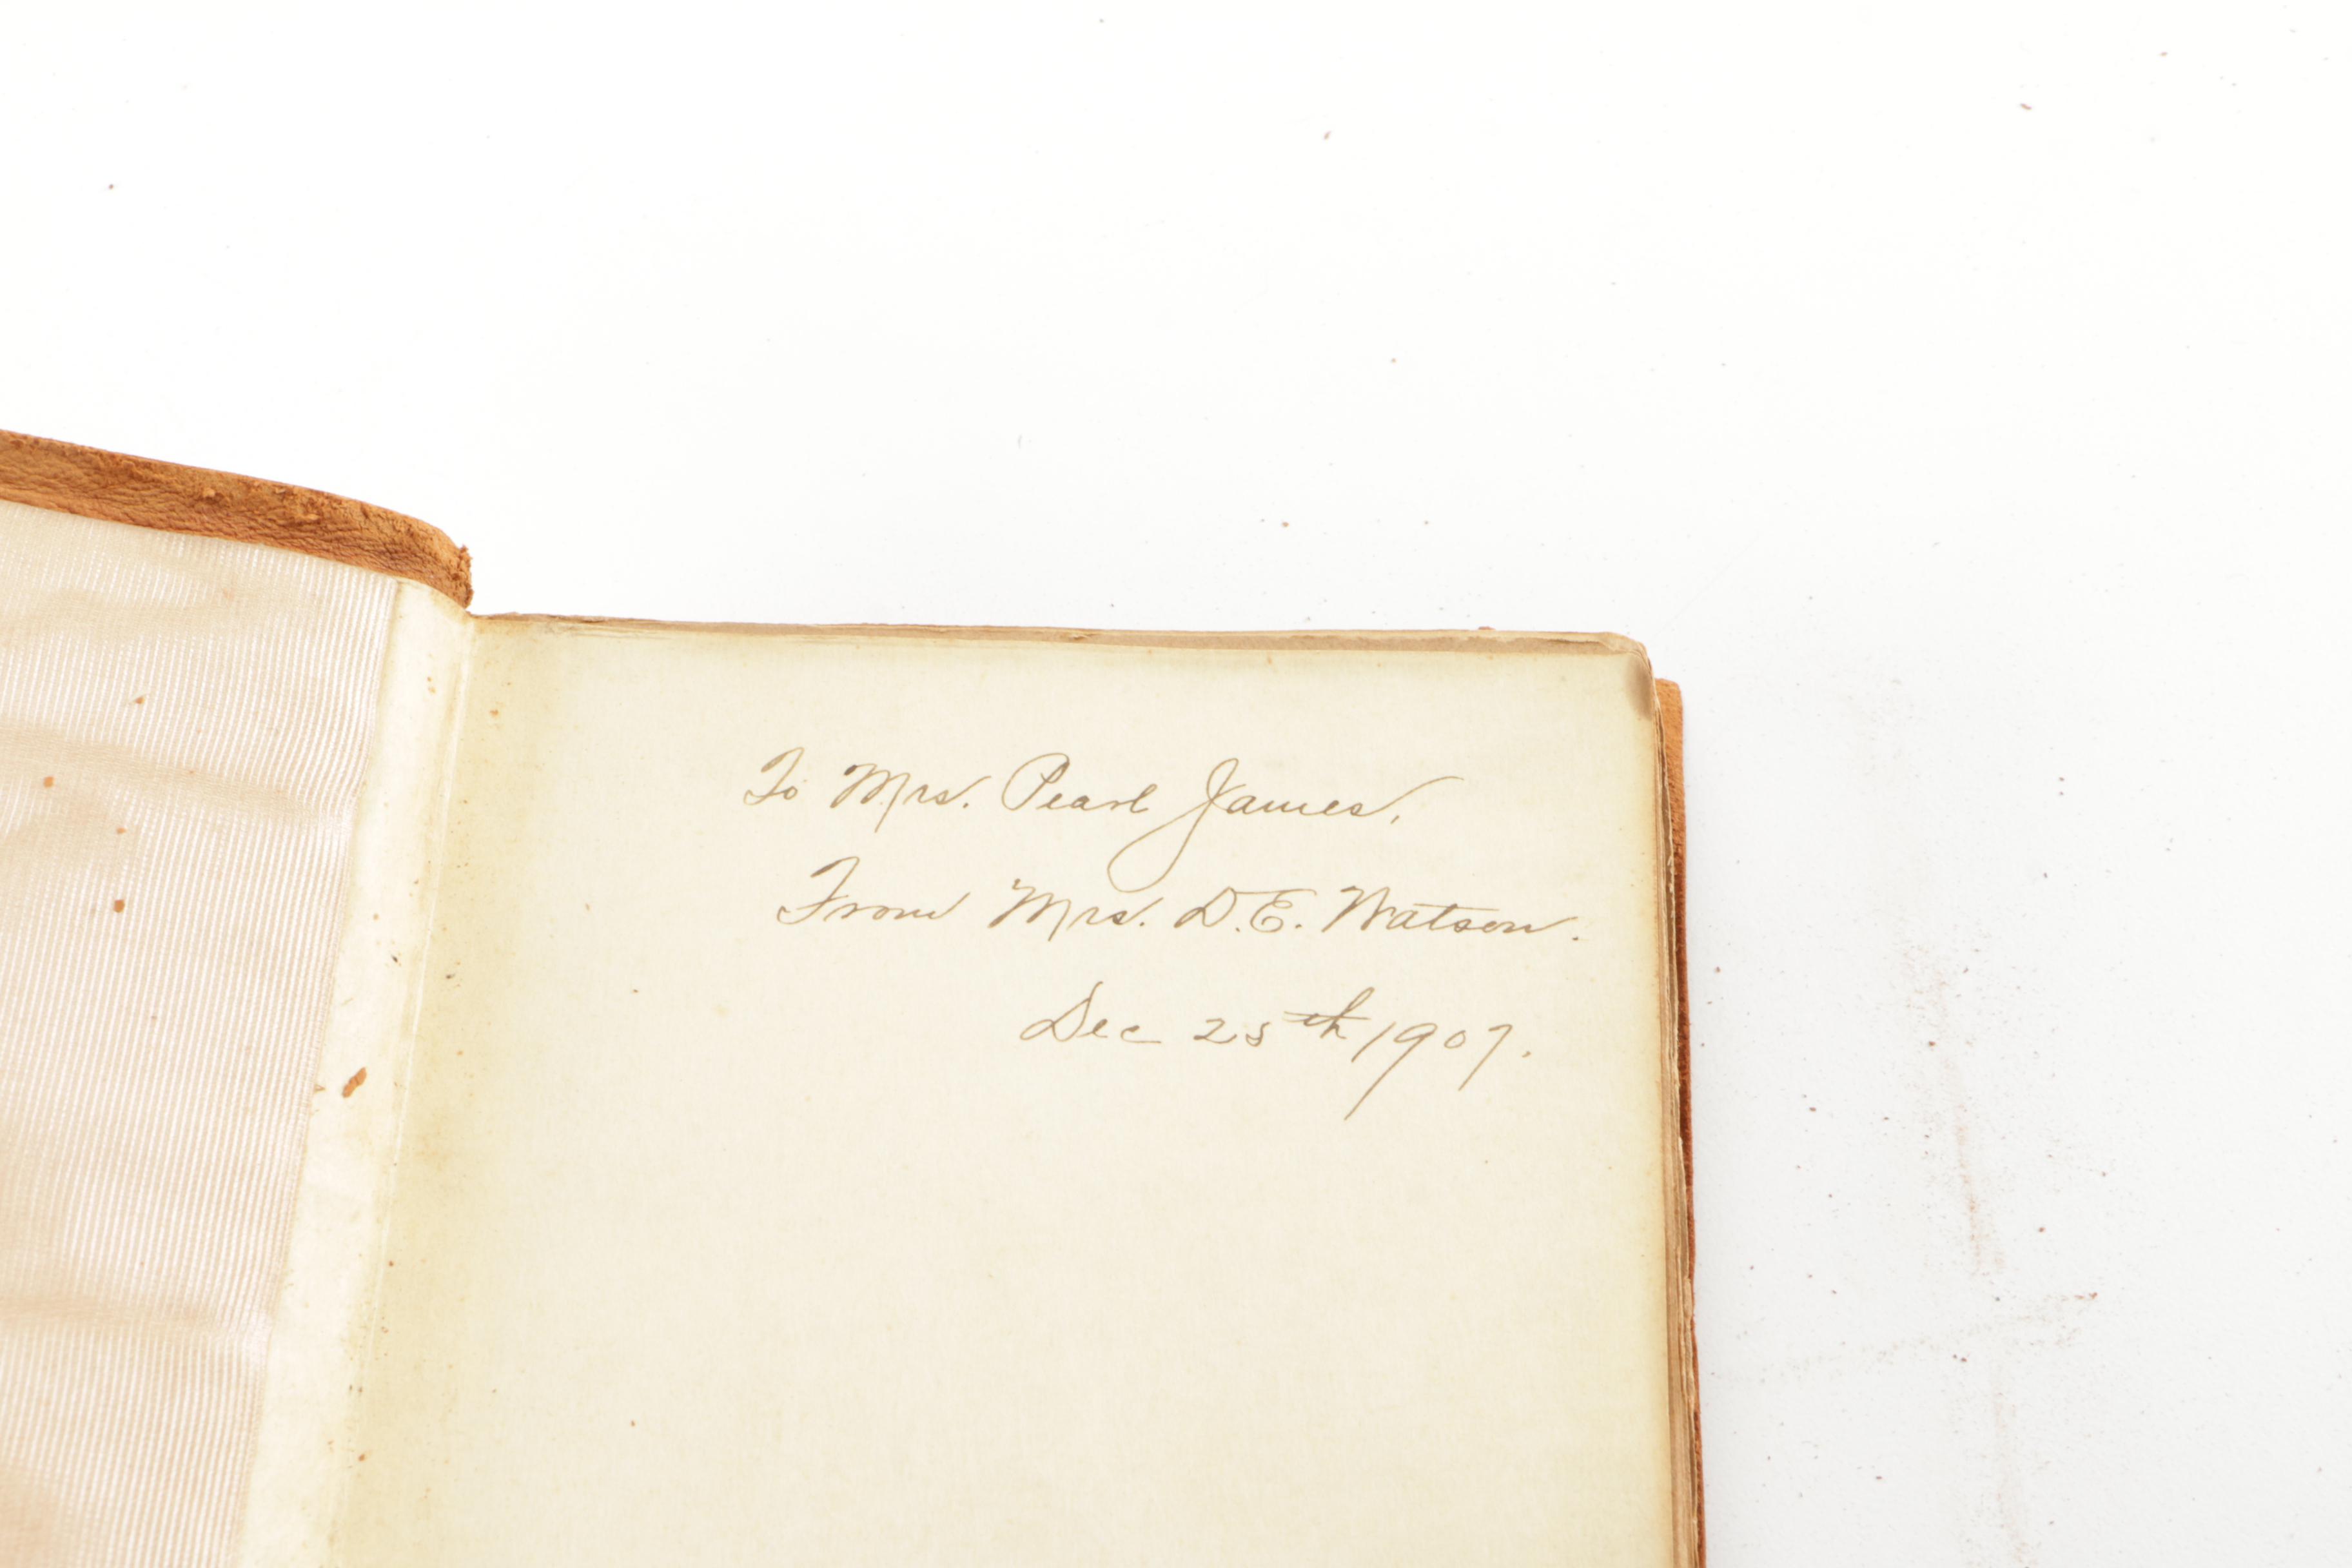 To Mrs. Pearl James,
From Mrs. D.E. Watson.
Dec 25th 1907.